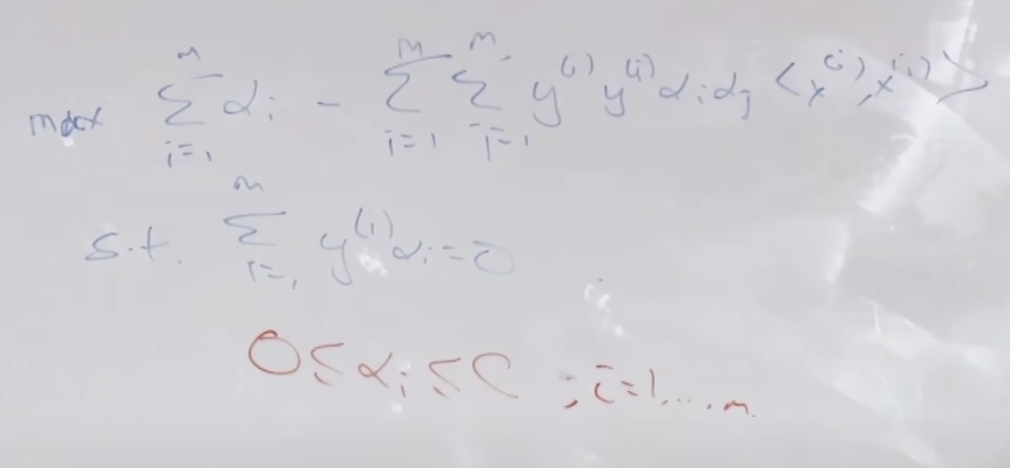 max Σ_{i=1}^{m} α_i - Σ_{i=1}^{m} Σ_{j=1}^{m} y^{(i)} y^{(j)} α_i α_j <x^{(i)}, x^{(j)}>
s.t. Σ_{i=1}^{m} y^{(i)} α_i = 0
0 ≤ α_i ≤ C ; i=1, ..., m.